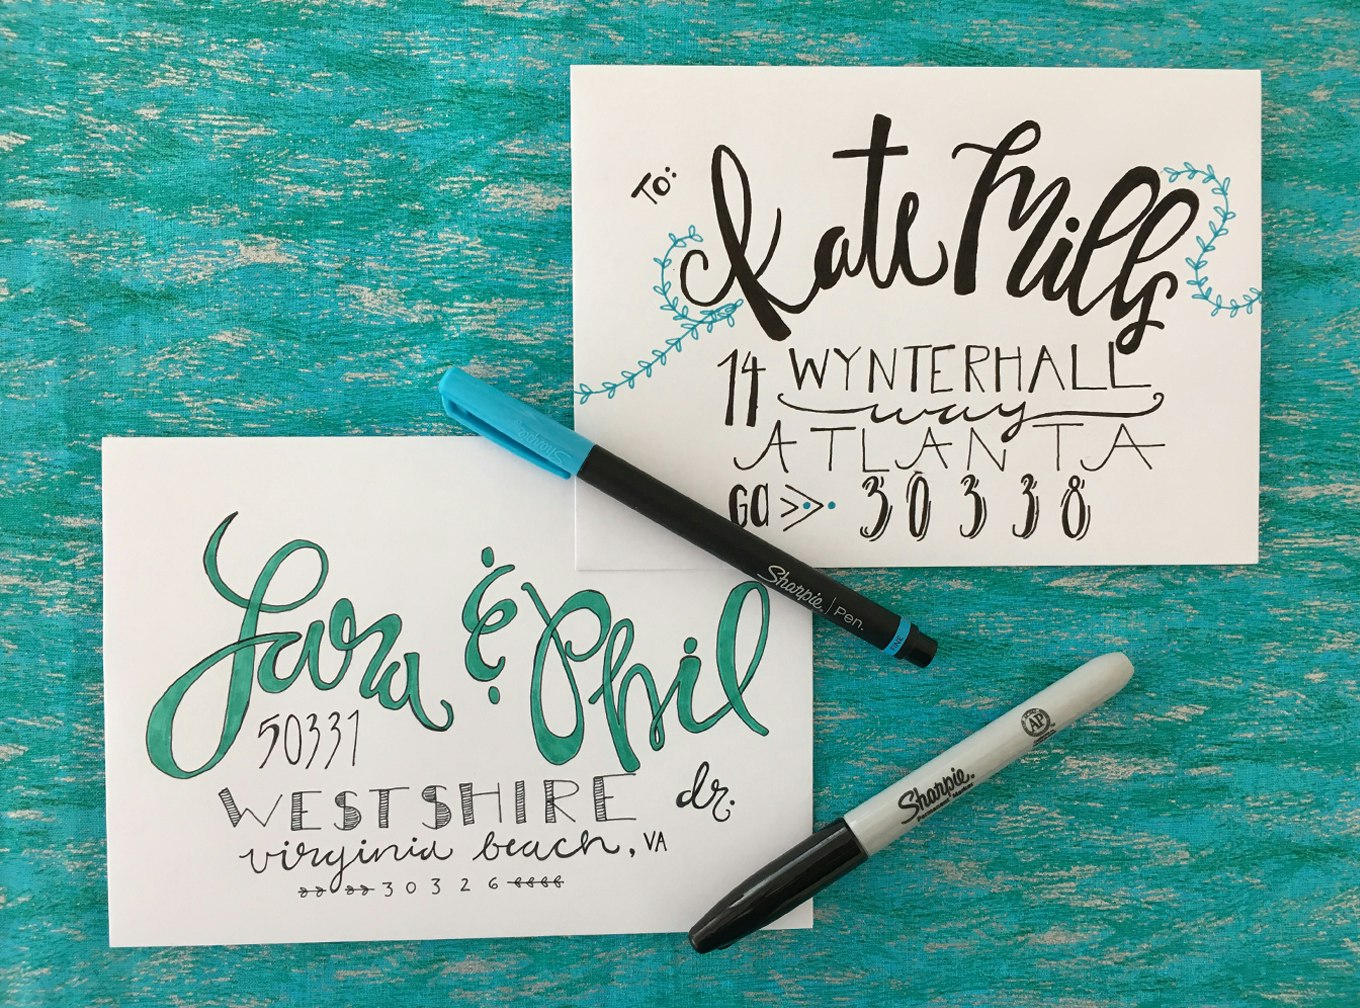 To:
Kate Mills
14 WYNTERHALL
way
ATLANTA
GA 30338
Sharpie
Sharpie. | Pen.
FINE
Lara & Phil
50331
WESTSHIRE dr.
virginia beach, VA
30326
AP
Sharpie.
Permanent Marker